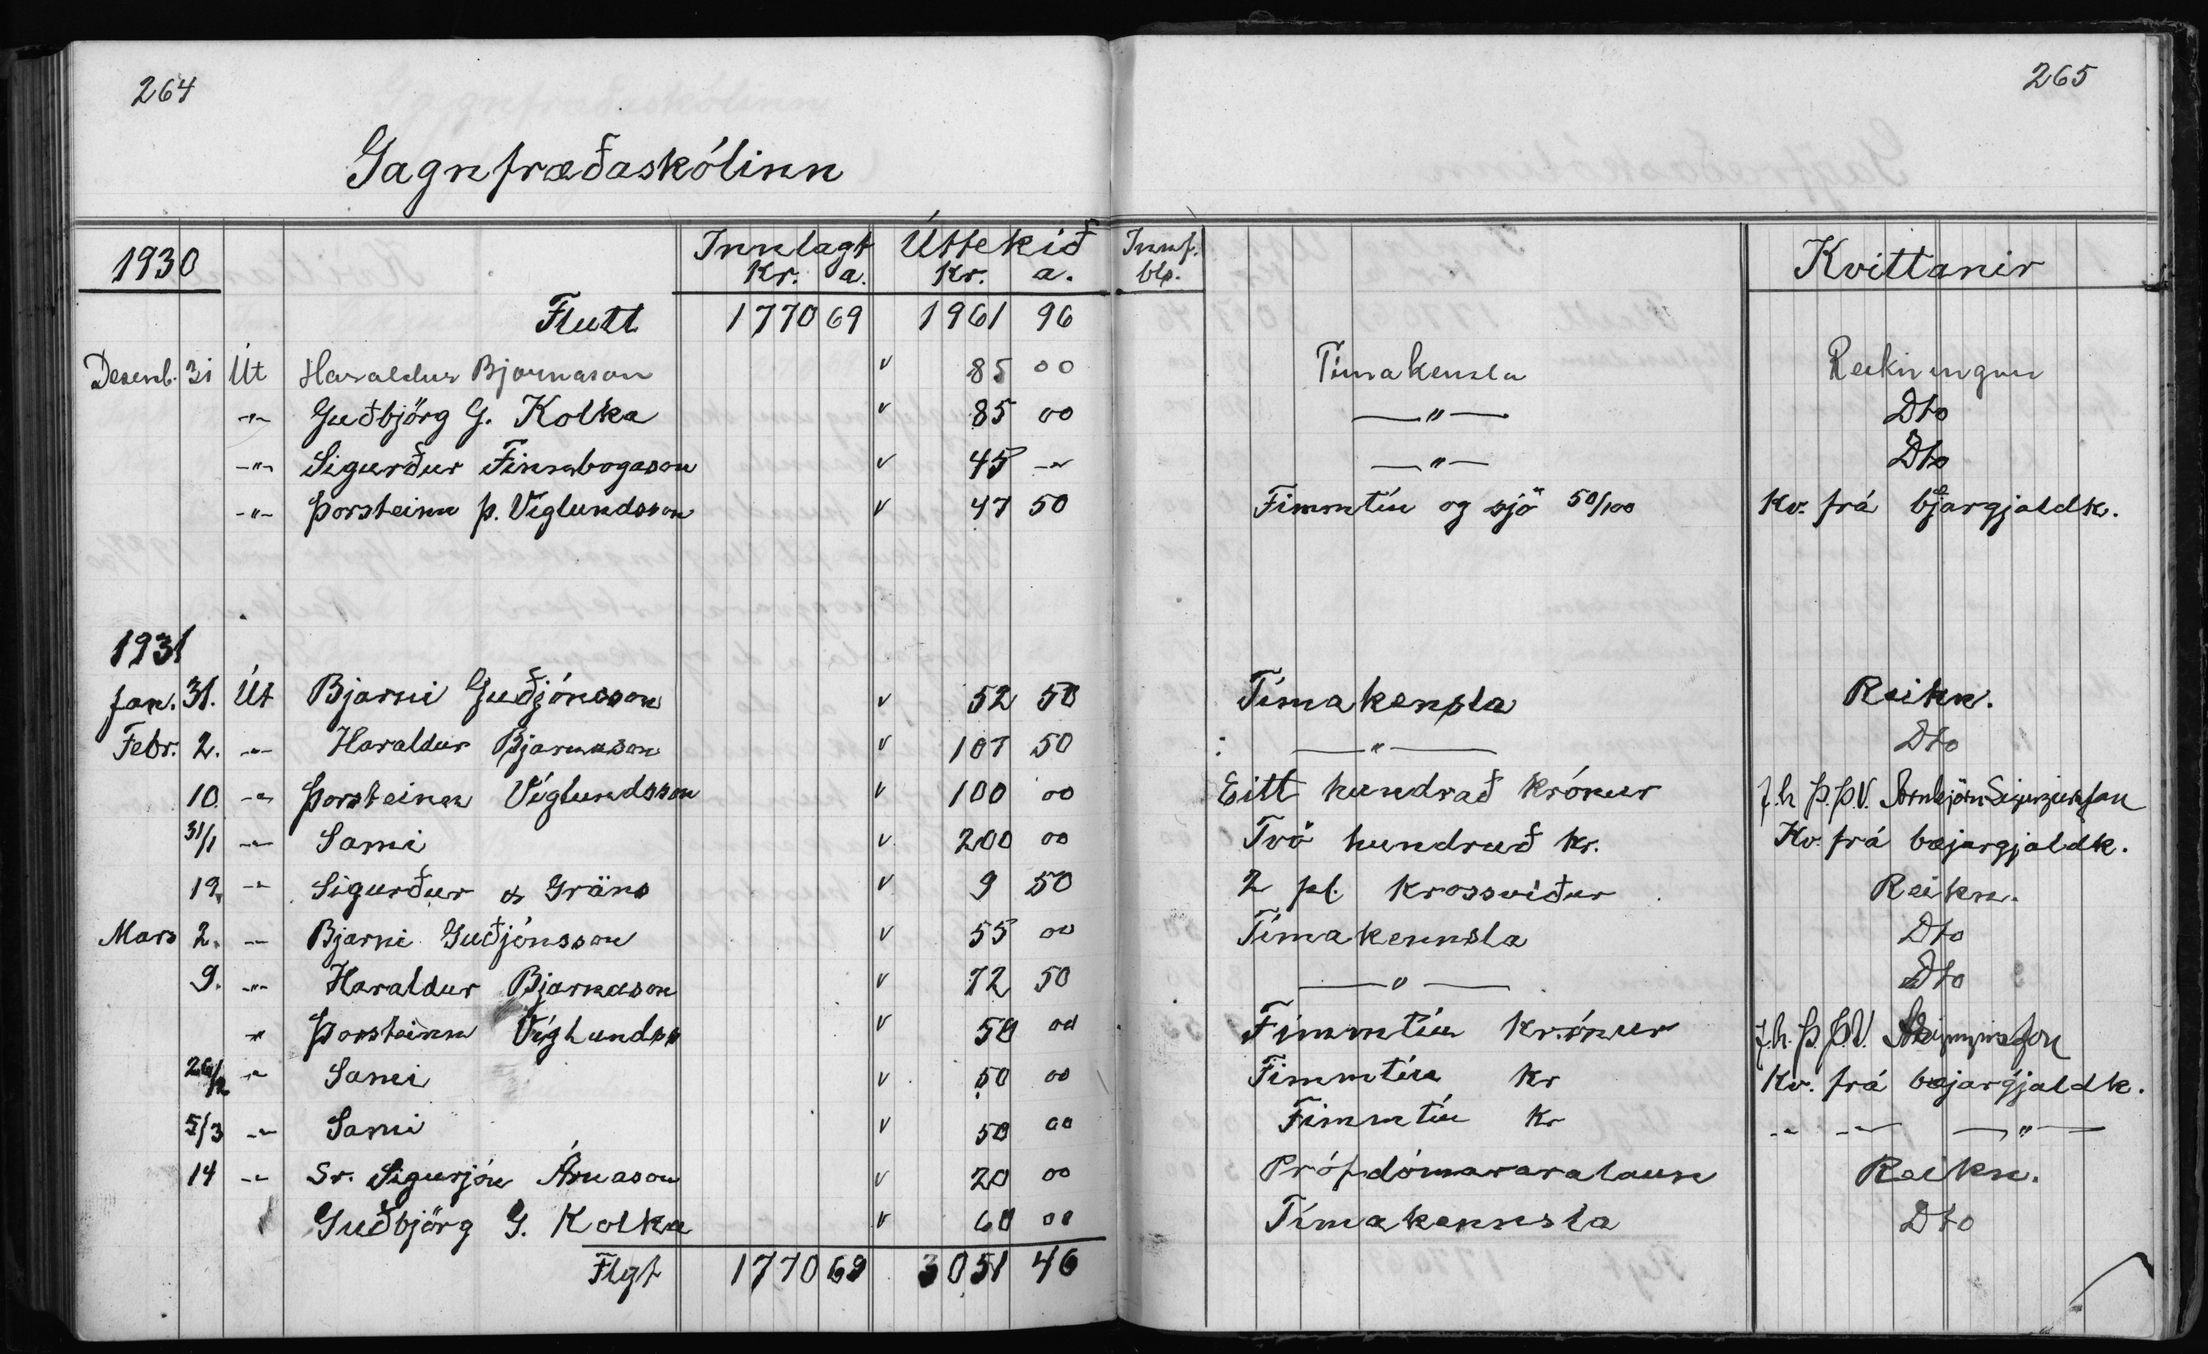 264
265
Gagnfræðaskólinn
1930 Innlagt Úttekið Innf. Kvittanir
Kr. a. Kr. a. bls.
Flutt 1770 69 1961 96
Desemb. 31 Út Haraldur Bjarnason v 85 00 Tímakensla Reikningur
-"- Guðbjörg G. Kolka v 85 00 —"— Dto
-"- Sigurður Finnbogason v 45 -"- —"— Dto
-"- Þorsteinn Þ. Víglundsson v 47 50 Fimmtíu og sjö 50/100 Kv. frá bæjargjaldk.
1931
Jan. 31. Út Bjarni Guðjónsson v 52 50 Tímakensla Reikn.
Febr. 2. -"- Haraldur Bjarnason v 107 50 —"— Dto
10 -"- Þorsteinn Víglundsson v 100 00 Eitt hundrað krónur f.h Þ.Þ.V. Sigurjónsson
31/1 -"- Sami v 200 00 Tvö hundruð kr. Kv. frá bæjargjaldk.
19. -"- Sigurður & Gräno v 9 50 2 pl. krossviður Reikn.
Mars 2. -"- Bjarni Guðjónsson v 55 00 Tímakennsla Dto
9. -"- Haraldur Bjarnason v 72 50 —"— Dto
" Þorsteinn Víglundss v 50 00 Fimmtíu krónur f.h. Þ.Þ.V.
26/2 " Sami v 50 00 Fimmtíu kr Kv. frá bæjargjaldk.
5/3 -"- Sami v 50 00 Fimmtíu kr -"- -"- —"—
14 -"- Sr. Sigurjón Árnason v 20 00 Prófdómararalaun Reikn.
Guðbjörg G. Kolka v 60 00 Tímakennsla Dto
Flgt 1770 69 3051 46